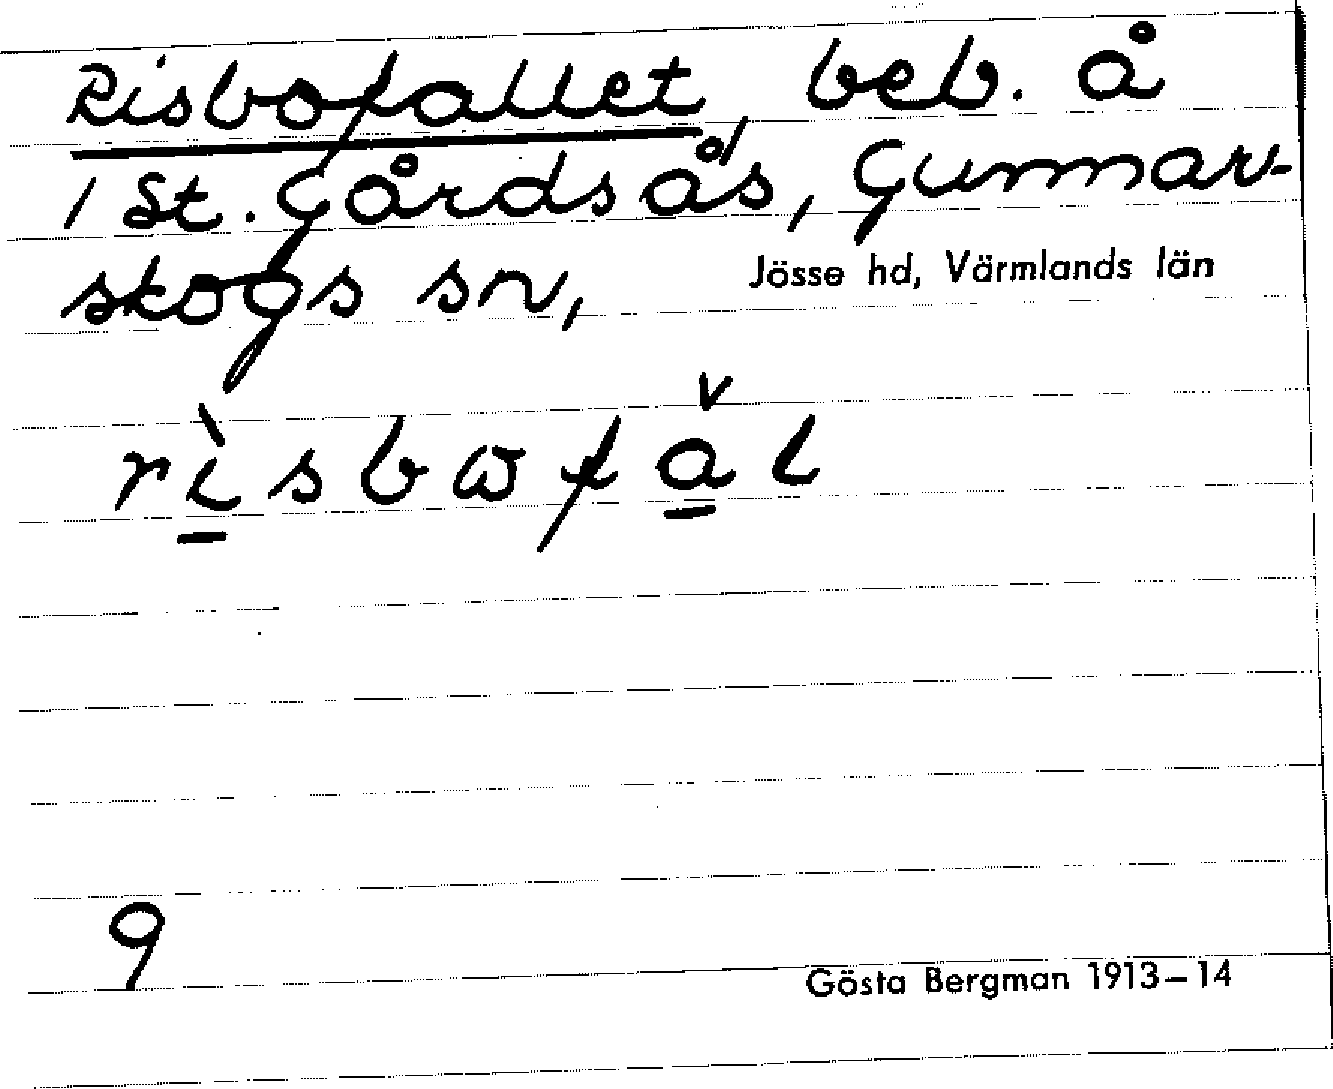 Risbofallet, beb. å
1 St. Gårdsås, Gunnar-
skogs sn, Jösse hd, Värmlands län
rìsbωfǎl
9
Gösta Bergman 1913–14